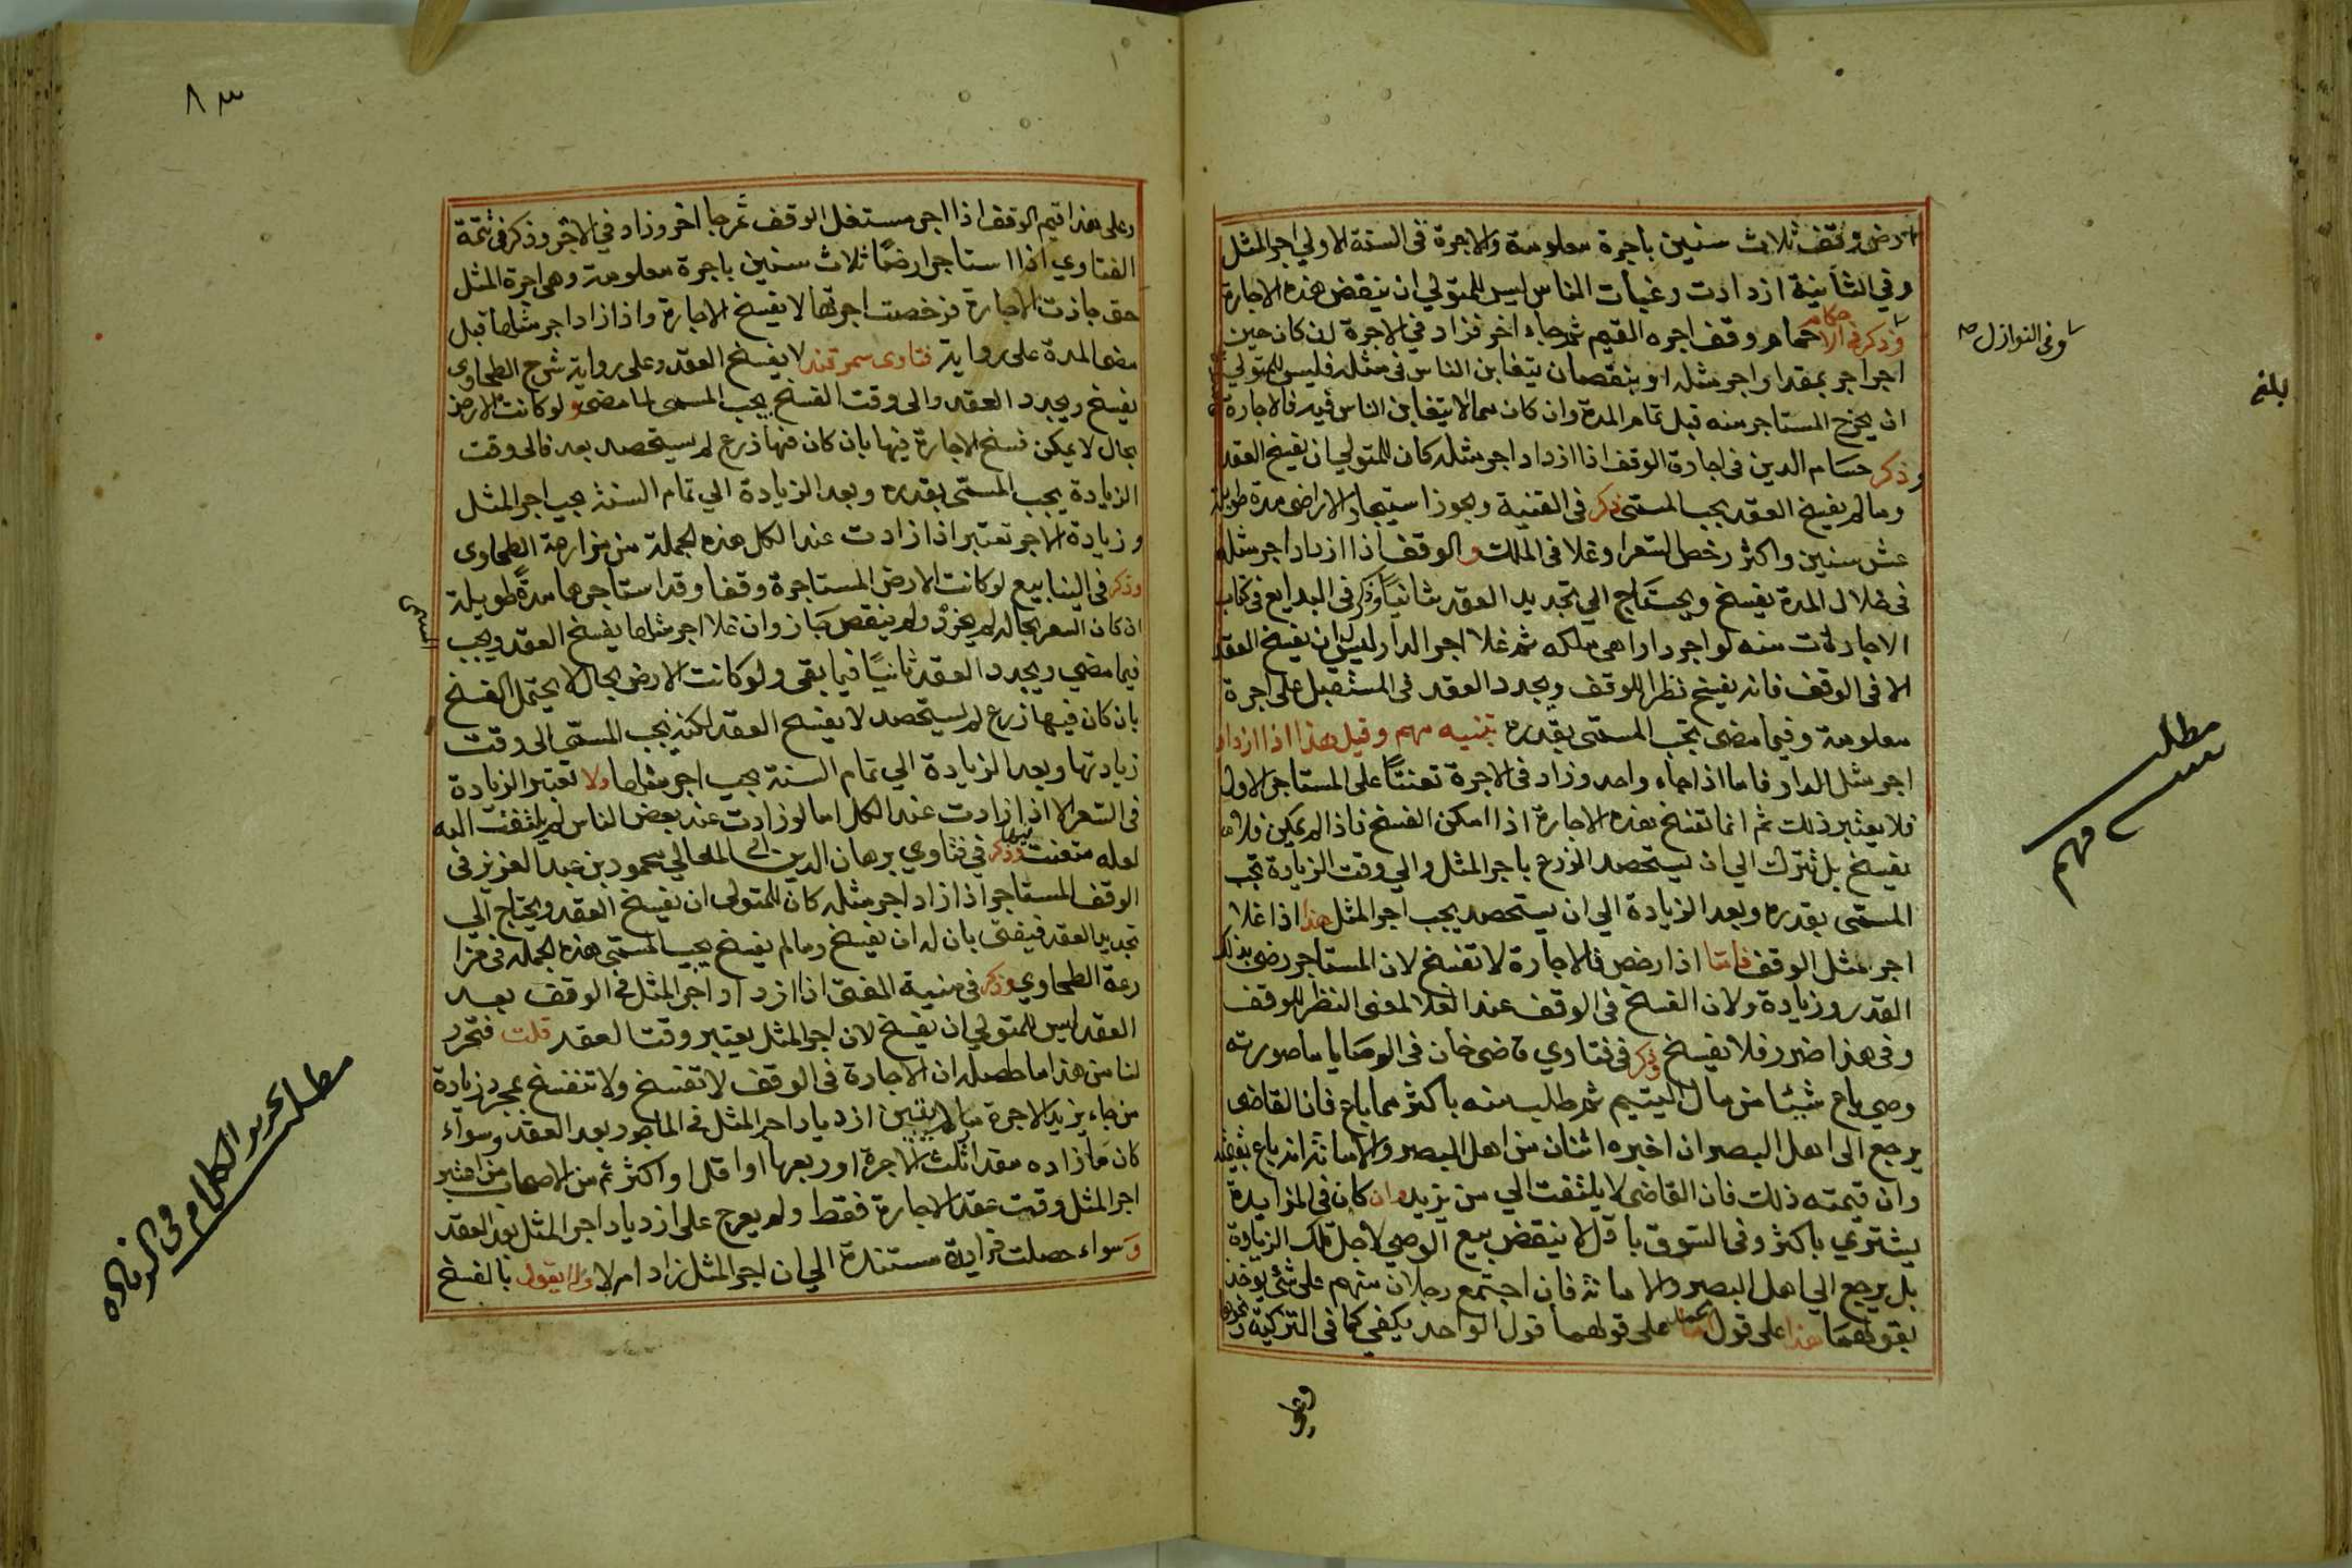 ارض وقف ثلاث سنين باجرة معلومة والاجرة فى السنة الاولي اجر المثل
وفي الثانية ازدادت رغبات الناس ليس للمتولي ان ينقض هذه الاجارة
وذكر في الاحكام حمام وقف اجره القيم ثم جاء اخر فزاد في الاجرة ان كان حين
اجر اجر بمقدار اجر مثله او بنقصان يتغابن الناس فى مثله فليس للمتولي
ان يخرج المستاجر منه قبل تمام المدة وان كان مما لا يتغابن الناس فيه فالاجارة
وذكر حسام الدين فى اجارة الوقف اذا ازداد اجر مثله كان للمتولي ان يفسخ العقد
وما لم يفسخ العقد يجب المسمى ذكر فى القنية ويجوز استيجار الاراضى مدة طويلة
عشر سنين واكثر رخص السعر او غلا فى الملك والوقف اذا ازداد اجر مثله
فى خلال المدة يفسخ ويحتاج الي تجديد العقد ثانيا وذكر فى البدايع فى كتاب
الاجارات منه لو اجر دارا هى ملكه ثم غلا اجر الدار ليس له ان يفسخ العقد
الا فى الوقف فانه يفسخ نظرا للوقف ويجدد العقد فى المستقبل على اجرة
معلومة وفيما مضى يجب المسمى بقدره تنبيه مهم وقيل هذا اذا ازداد
اجر مثل الدار فاما اذا جاء واحد وزاد فى الاجرة تعنتا على المستاجر الاول
فلا يعتبر ذلك ثم انما تفسخ هذه الاجارة اذا امكن الفسخ فاذا لم يمكن فلا
يفسخ بل تترك الي ان يستحصد الزرع باجر المثل والي وقت الزيادة يجب
المسمى بقدره وبعد الزيادة الي ان يستحصد يجب اجر المثل هذا اذا غلا
اجر مثل الوقف فاما اذا رخص فالاجارة لا تفسخ لان المستاجر رضى بذلك
القدر وزيادة ولان الفسخ فى الوقف عند الغلا لمعنى النظر للوقف
وفى هذا ضرر فلا يفسخ وذكر فى فتاوي قاضى خان فى الوصايا ما صورته
وصي باع شيئا من مال اليتيم ثم طلب منه باكثر مما باع فان القاضى
يرجع الى اهل البصر ان اخبره اثنان من اهل البصر والامانة انه باع بقيمته
وان قيمته ذلك فان القاضى لا يلتفت الي من يزيد وان كان فى المزايدة
يشتري باكثر وفى السوق باقل لا ينقض بيع الوصي لاجل تلك الزيادة
بل يرجع الي اهل البصر والامانة فان اجتمع رجلان منهم على شئ يوخذ
بقولهما هذا على قول محمد اما على قولهما قول الواحد يكفى كما فى التزكية ونحوها
وعلي
وفى النوازل صح
بلغ
مطلب
مهم
٨٣
وعلى هذا قيم الوقف اذا اجر مستغل الوقف ثم جا اخر وزاد في الاجر وذكر فى تتمة
الفتاوي اذا استاجر ارضا ثلاث سنين باجرة معلومة وهى اجرة المثل
حتى جازت الاجارة فرخصت اجرتها لا يفسخ الاجارة واذا زاد اجر مثلها قبل
مضى المدة على رواية فتاوى سمرقند لا يفسخ العقد وعلى رواية شرح الطحاوى
يفسخ ويجدد العقد والى وقت الفسخ يجب المسمى لما مضى ولو كانت الارض
بحال لا يمكن فسخ الاجارة فيها بان كان فيها زرع لم يستحصد بعد فالى وقت
الزيادة يجب المسمى بقدره وبعد الزيادة الي تمام السنة يجب اجر المثل
وزيادة الاجر تعتبر اذا زادت عند الكل هذه الجملة من مزارعة الطحاوى
وذكر فى الينابيع لو كانت الارض المستاجرة وقفا وقد استاجرها مدة طويلة
ان كان السعر بحاله لم يزد ولم ينقص جاز وان غلا اجر مثلها يفسخ العقد ويجب
المسمى
فيما مضي ويجدد العقد ثانيا فيما بقى ولو كانت الارض بحال لا يحتمل الفسخ
بان كان فيها زرع لم يستحصد لا يفسخ العقد لكنه يجب المسمى الى وقت
زيادتها وبعد الزيادة الي تمام السنة يجب اجر مثلها ولا تعتبر الزيادة
فى السعر الا اذا زادت عند الكل اما لو زادت عند بعض الناس لم يلتفت اليه
لعله متعنت وذكر في فتاوي برهان الدين ابى المعالي محمود بن عبد العزيز فى
الوقف المستاجر اذا زاد اجر مثله كان للمتولى ان يفسخ العقد ويحتاج الى
تجديد العقد فيفتى بان له ان يفسخ وما لم يفسخ يجب المسمى هذه الجملة فى مزا
رعة الطحاوي وذكر فى منية المفتى اذا ازداد اجر المثل فى الوقف بعد
العقد ليس للمتولي ان يفسخ لان اجر المثل يعتبر وقت العقد قلت فتحرر
لنا من هذا ما حاصله ان الاجارة فى الوقف لا تفسخ ولا تنفسخ بمجرد زيادة
من جاء يزيد الاجرة ما لم يتبين ازدياد اجر المثل فى الماجور بعد العقد وسواء
كان ما زاده مقدار ثلث الاجرة او ربعها او اقل او اكثر ثم من الاصحاب من اعتبر
اجر المثل وقت عقد الاجارة فقط ولم يعرج على ازدياد اجر المثل بعد العقد
وسواء حصلت زيادة مستندة الي ان اجر المثل زاد ام لا ولا يقول بالفسخ
مطلب تحرير الكلام فى الزيادة